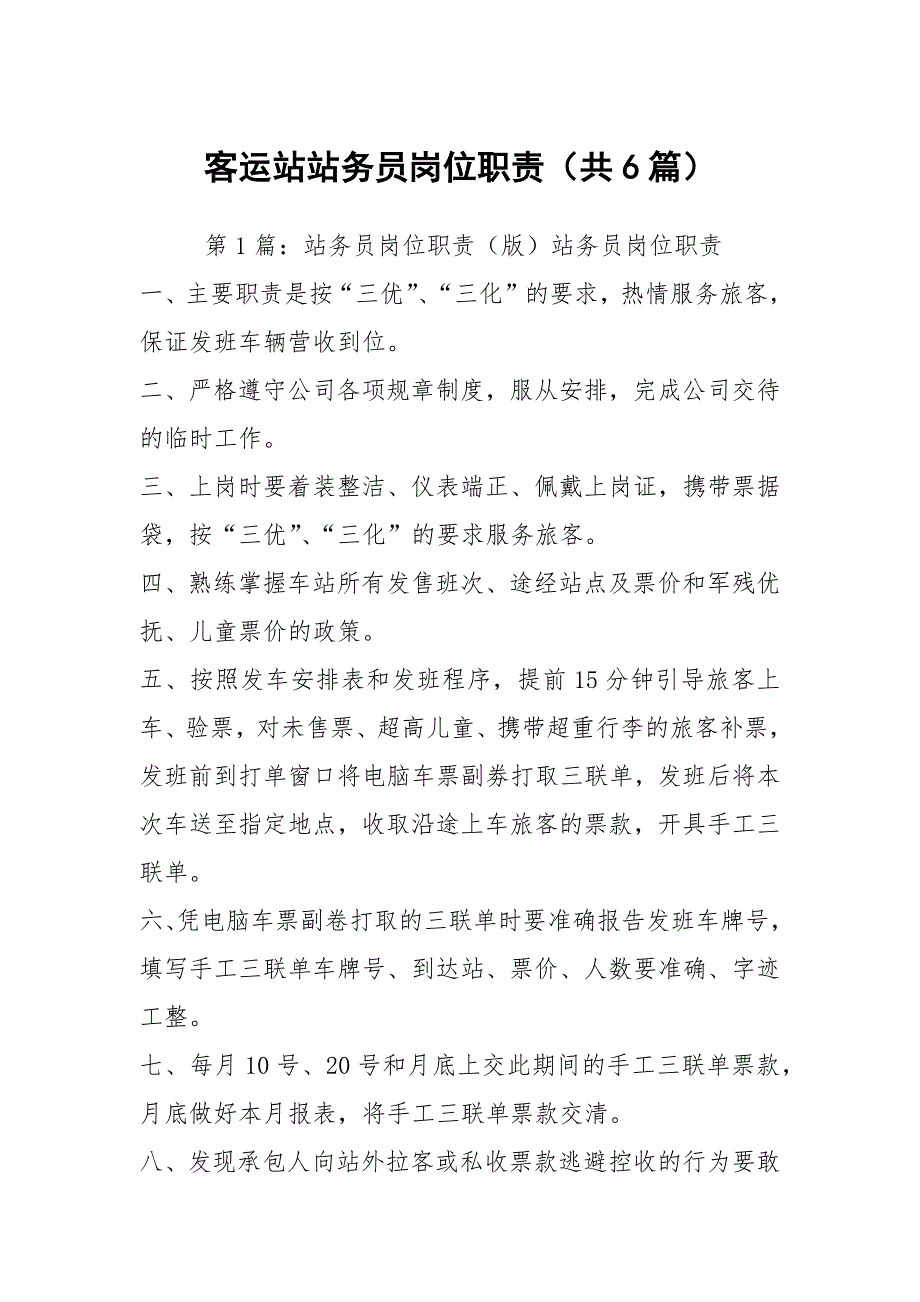 客运站站务员岗位职责（共6篇）
第1篇：站务员岗位职责（版）站务员岗位职责
一、主要职责是按“三优”、“三化”的要求，热情服务旅客，
保证发班车辆营收到位。
二、严格遵守公司各项规章制度，服从安排，完成公司交待
的临时工作。
三、上岗时要着装整洁、仪表端正、佩戴上岗证，携带票据
袋，按“三优”、“三化”的要求服务旅客。
四、熟练掌握车站所有发售班次、途经站点及票价和军残优
抚、儿童票价的政策。
五、按照发车安排表和发班程序，提前15分钟引导旅客上
车、验票，对未售票、超高儿童、携带超重行李的旅客补票，
发班前到打单窗口将电脑车票副劵打取三联单，发班后将本
次车送至指定地点，收取沿途上车旅客的票款，开具手工三
联单。
六、凭电脑车票副卷打取的三联单时要准确报告发班车牌号，
填写手工三联单车牌号、到达站、票价、人数要准确、字迹
工整。
七、每月10号、20号和月底上交此期间的手工三联单票款，
月底做好本月报表，将手工三联单票款交清。
八、发现承包人向站外拉客或私收票款逃避控收的行为要敢